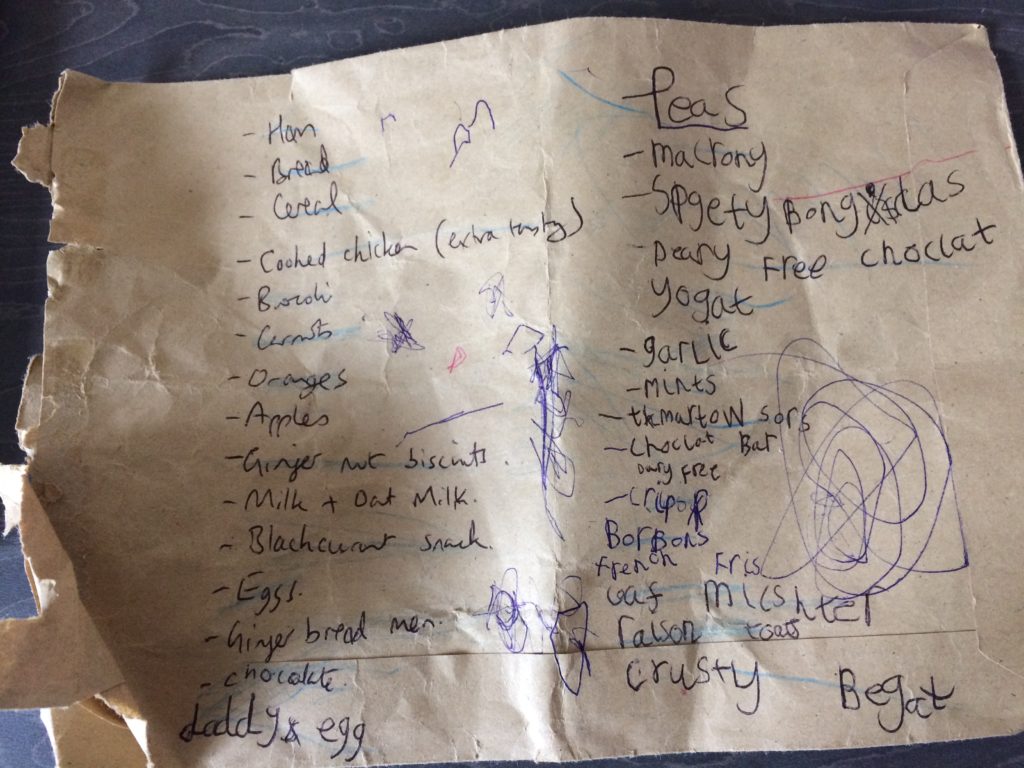 - Ham
- Bread
- Cereal
- Cooked chicken (extra tasty)
- Brocoli
- Carrots
- Oranges
- Apples
- Ginger nut biscuits.
- Milk + Oat Milk.
- Blackcurrant snack.
- Eggs.
- Ginger bread men.
- chocolate.
daddys egg
- Peas
- macrony
- Spgety Bong
- Deary Free choclat
yogat
- garlic
- mints
- tkmartow sors
- choclat Bar
Dairy free
- crisp
Borbons
french fris
oaf
raison toats
crusty Begat